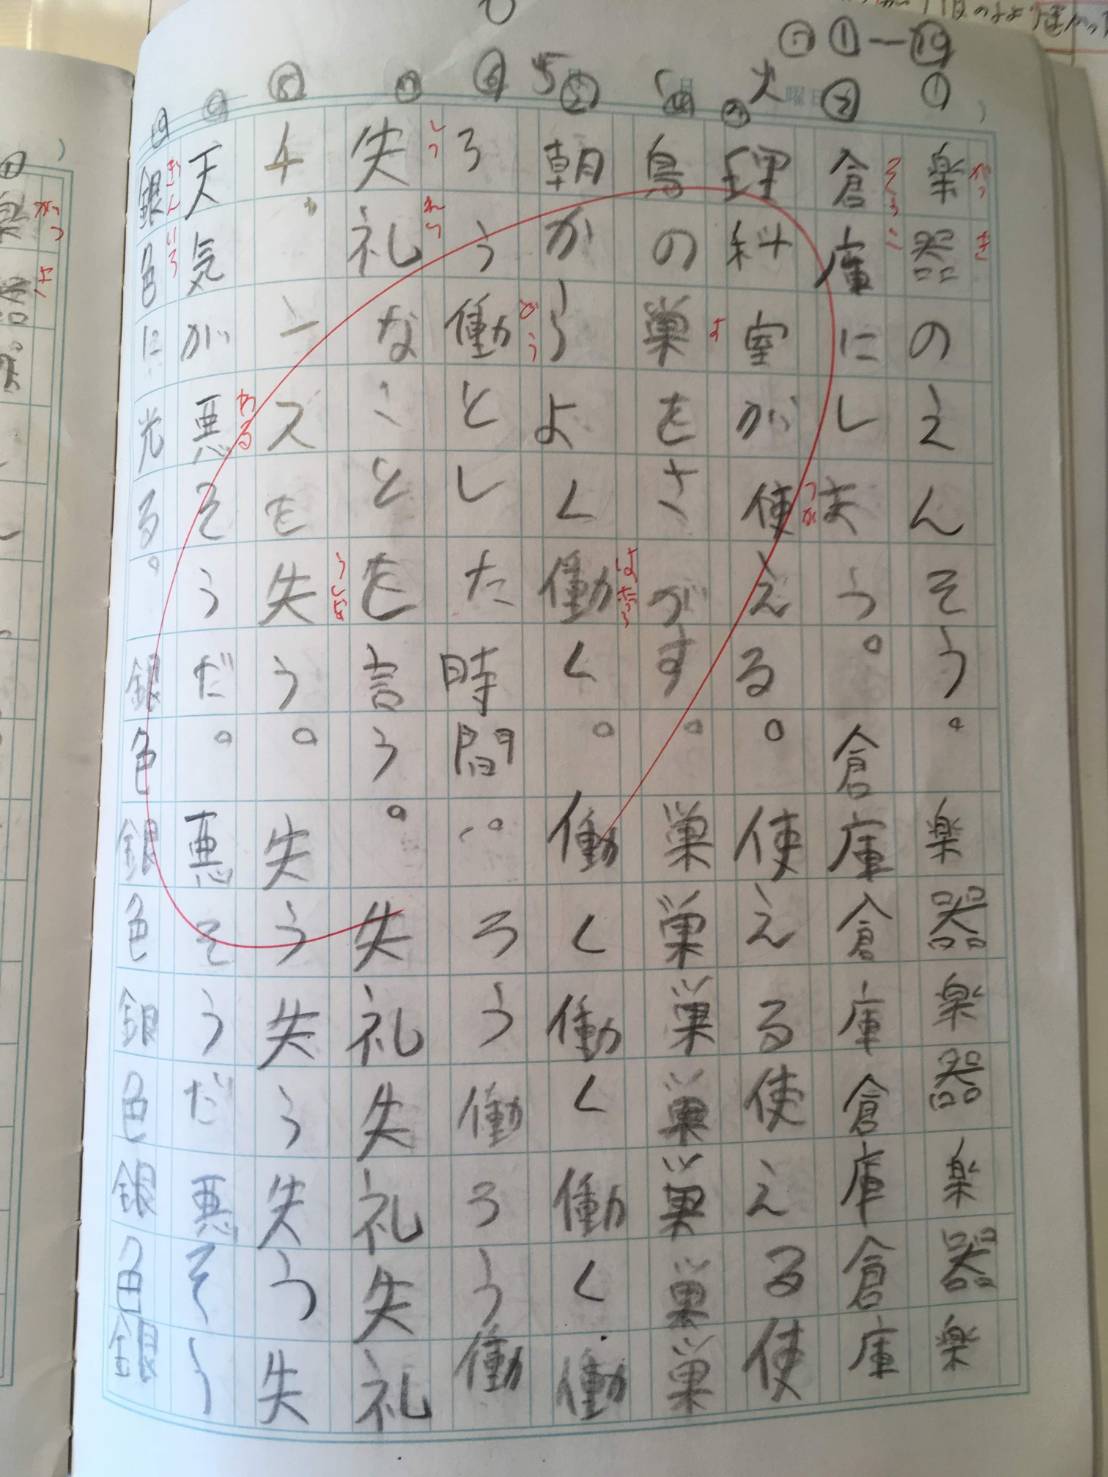 ① 
②
火曜日
がっき
楽器のえんそう。楽器楽器楽器楽
そうこ
倉庫にしまう。倉庫倉庫倉庫倉庫
つか
理科室が使える。使える使える使
す
鳥の巣をさがす。巣巣巣巣巣巣巣
はたら
朝からよく働く。働く働く働く働
どう
ろう働とした時間。ろう働ろう働
しつれい
失礼なことを言う。失礼失礼失礼
うしな
チャンスを失う。失う失う失う失
わる
天気が悪そうだ。悪そうだ悪そう
ぎんいろ
銀色に光る。銀色銀色銀色銀色銀